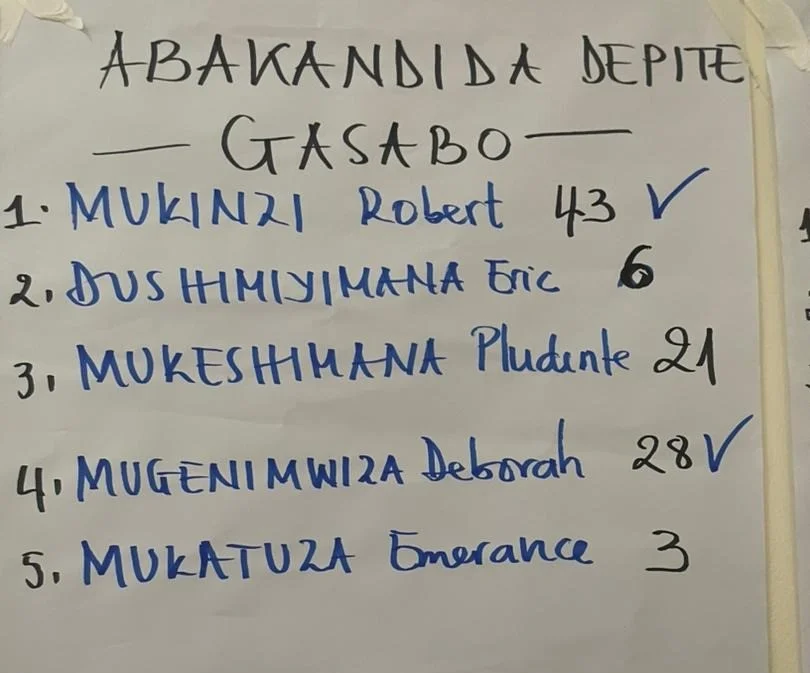 ABAKANDIDA DEPITE
— GASABO —
1. MUKINZI Robert 43 ✓
2. DUSHIMIYIMANA Eric 6
3. MUKESHIMANA Pludente 21
4. MUGENIMWIZA Deborah 28 ✓
5. MUKATUZA Emerance 3